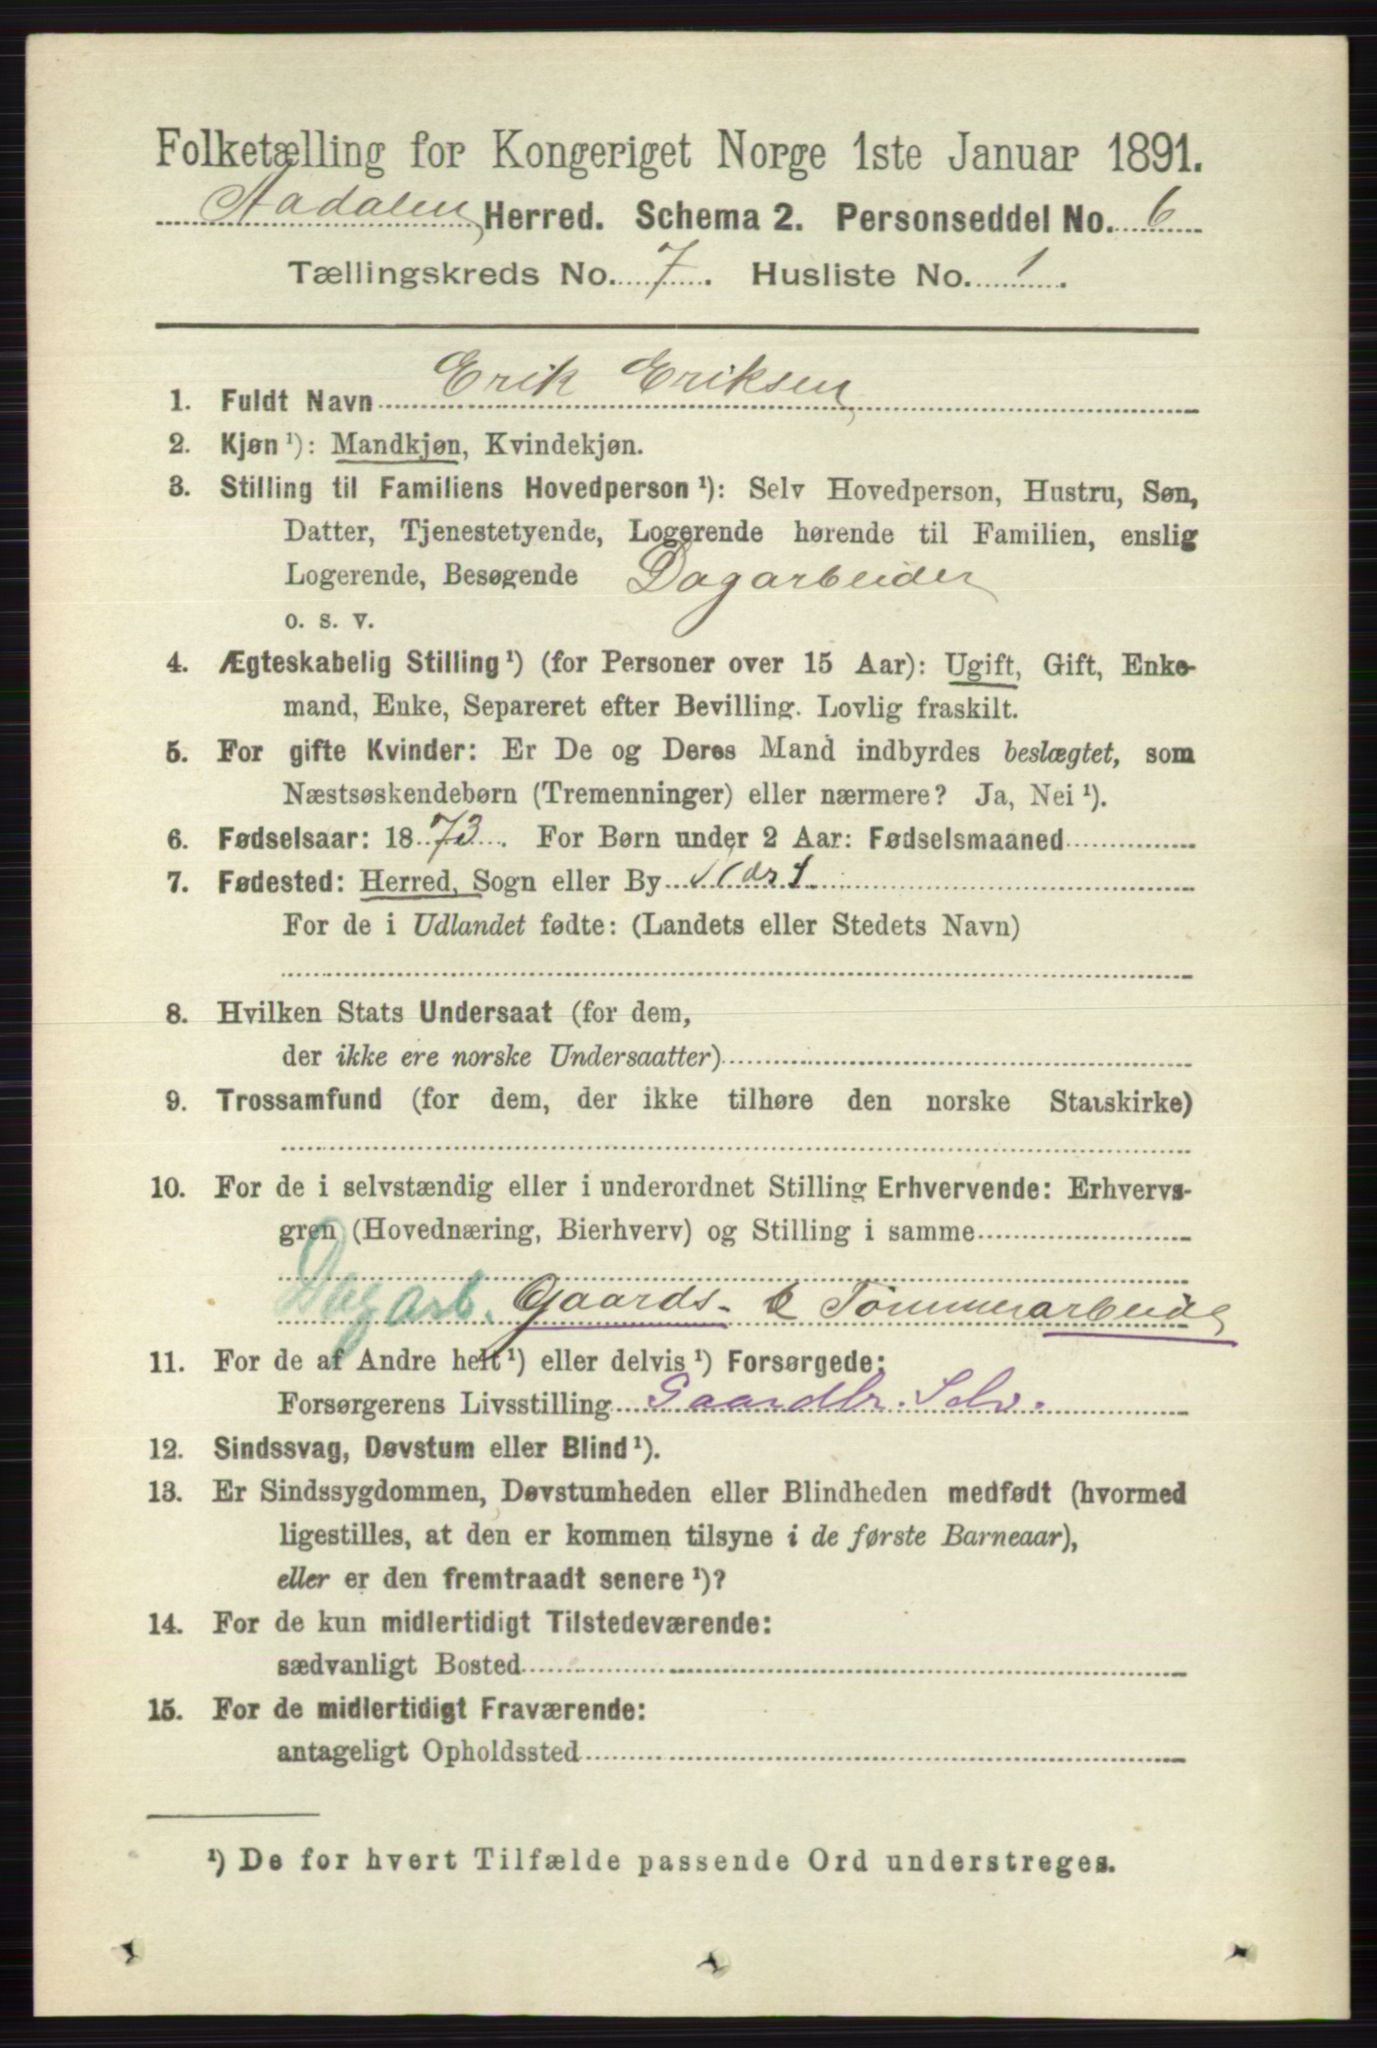 Folketælling for Kongeriget Norge 1ste Januar 1891.
Aadalen Herred. Schema 2. Personseddel No. 6
Tællingskreds No. 7. Husliste No. 1.
1. Fuldt Navn Erik Eriksen
2. Kjøn ¹): Mandkjøn, Kvindekjøn.
3. Stilling til Familiens Hovedperson ¹): Selv Hovedperson, Hustru, Søn,
Datter, Tjenestetyende, Logerende hørende til Familien, enslig
Logerende, Besøgende Dagarbeider
o. s. v.
4. Ægteskabelig Stilling ¹) (for Personer over 15 Aar): Ugift, Gift, Enke-
mand, Enke, Separeret efter Bevilling. Lovlig fraskilt.
5. For gifte Kvinder: Er De og Deres Mand indbyrdes beslægtet, som
Næstsøskendebørn (Tremenninger) eller nærmere? Ja, Nei ¹).
6. Fødselsaar: 1873. For Børn under 2 Aar: Fødselsmaaned
7. Fødested: Herred, Sogn eller By
For de i Udlandet fødte: (Landets eller Stedets Navn)
8. Hvilken Stats Undersaat (for dem,
der ikke ere norske Undersaatter)
9. Trossamfund (for dem, der ikke tilhøre den norske Statskirke)
10. For de i selvstændig eller i underordnet Stilling Erhvervende: Erhvervs-
gren (Hovednæring, Bierhverv) og Stilling i samme
Dagarb. Gaards- & Tømmerarbeide
11. For de af Andre helt ¹) eller delvis ¹) Forsørgede:
Forsørgerens Livsstilling Gaardbr. Selv.
12. Sindssvag, Døvstum eller Blind ¹).
13. Er Sindssygdommen, Døvstumheden eller Blindheden medfødt (hvormed
ligestilles, at den er kommen tilsyne i de første Barneaar),
eller er den fremtraadt senere ¹)?
14. For de kun midlertidigt Tilstedeværende:
sædvanligt Bosted
15. For de midlertidigt Fraværende:
antageligt Opholdssted
¹) De for hvert Tilfælde passende Ord understreges.